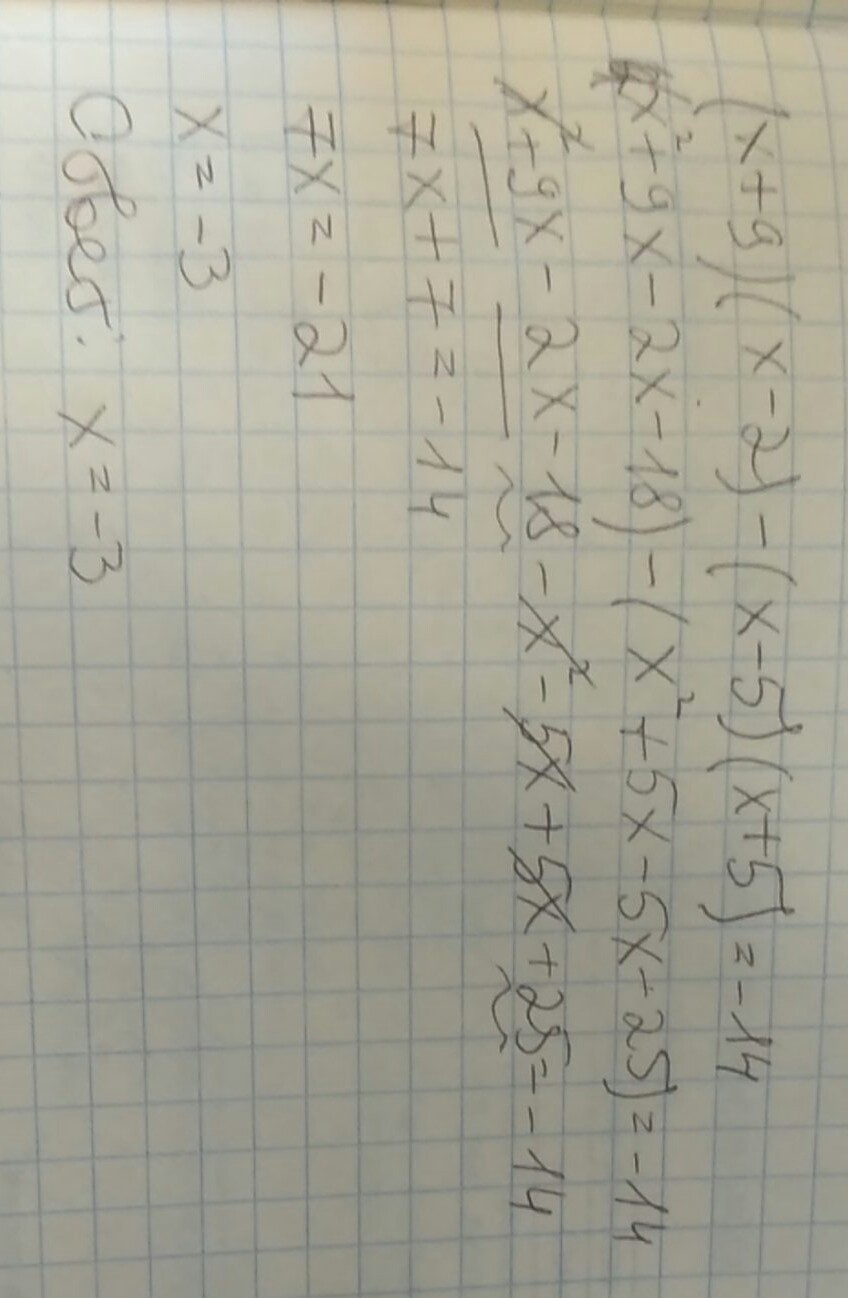 (x+9)(x-2)-(x-5)(x+5)=-14
(x²+9x-2x-18)-(x²+5x-5x-25)=-14
x²+9x-2x-18-x²-5x+5x+25=-14
7x+7=-14
7x=-21
x=-3
Ответ: x=-3